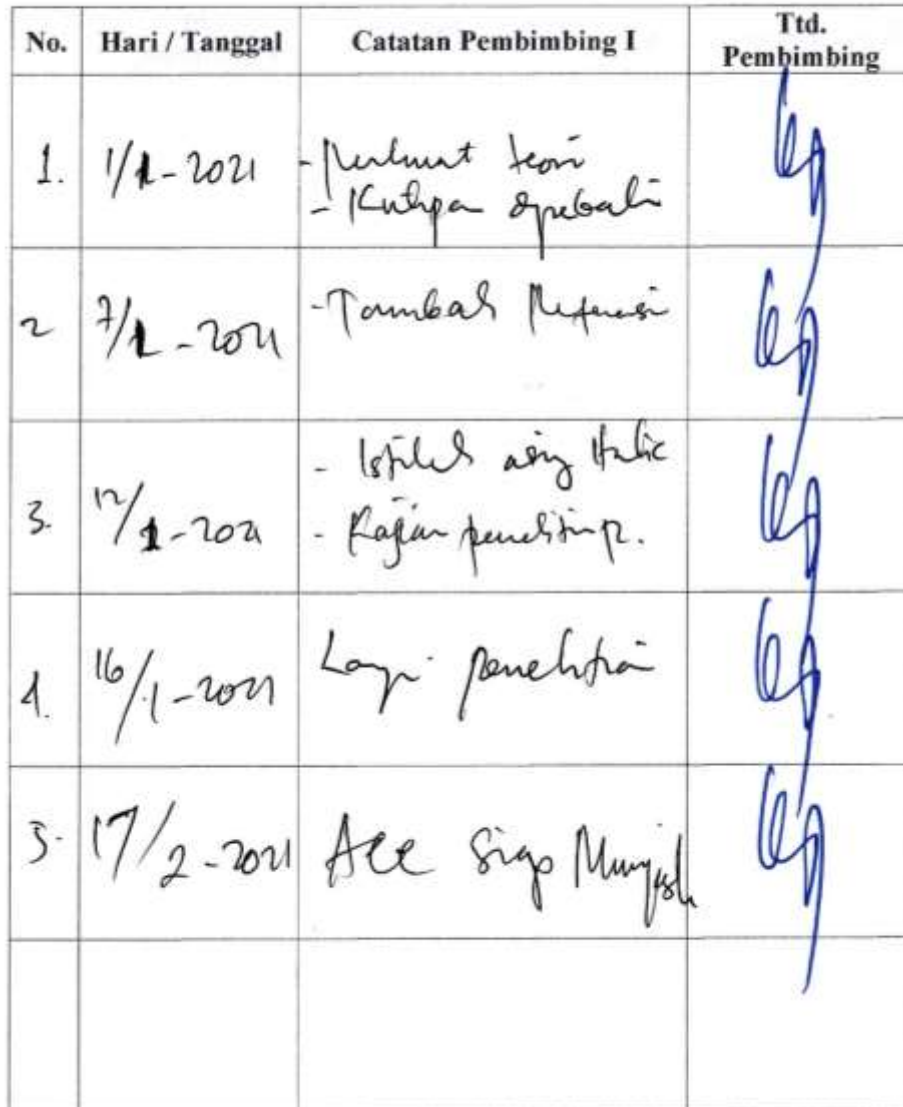 No. Hari / Tanggal Catatan Pembimbing I Ttd. Pembimbing
1. 1/1-2021 - Perkuat teori
- Kutipan diperbaiki
2 7/1-2021 - Tambah Referensi
3. 12/1-2021 - Istilah asing Italic
- Kajian penelitin p.
4. 16/1-2021 penelitian
5. 17/2-2021 Acc Siap